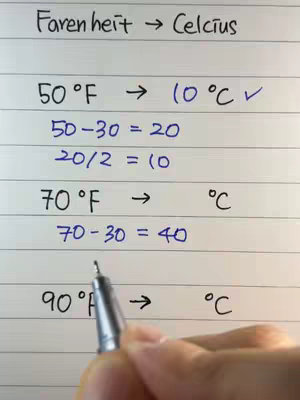 Farenheit → Celcius
50 °F → 10 °C ✓
50 - 30 = 20
20/2 = 10
70 °F → °C
70 - 30 = 40
90 °F → °C